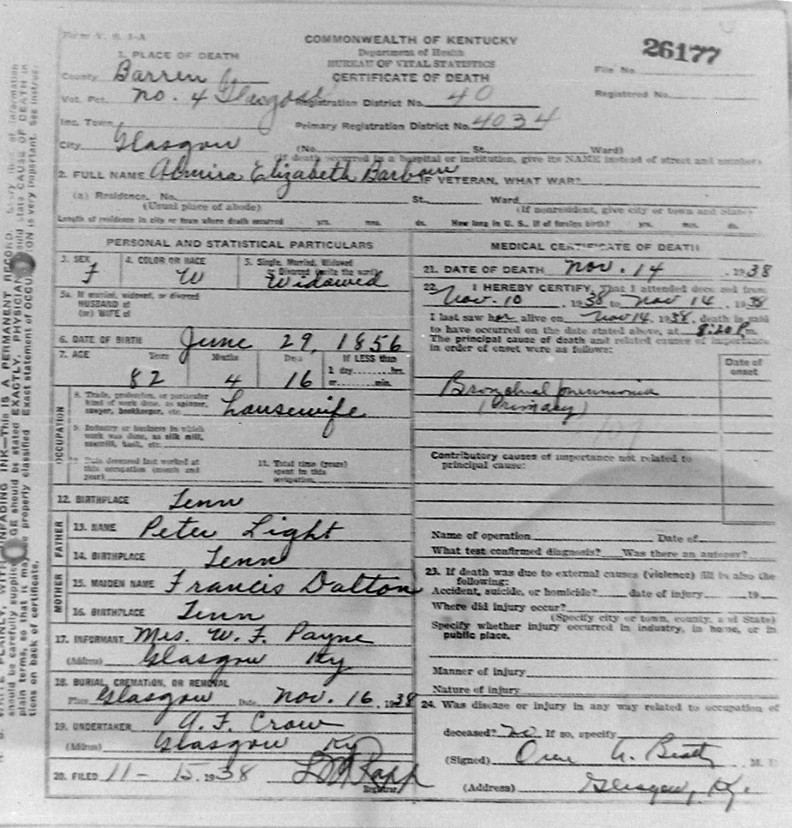 Form V. S. 1-A
COMMONWEALTH OF KENTUCKY
Department of Health
BUREAU OF VITAL STATISTICS
CERTIFICATE OF DEATH
26177
File No.
Registered No.
1. PLACE OF DEATH
County Barren
Vot. Pct. No. 4 Glasgow Registration District No. 40
Inc. Town Primary Registration District No. 4034
City Glasgow (No. St. Ward)
(If death occurred in a hospital or institution, give its NAME instead of street and number)
2. FULL NAME Almira Elizabeth Barbour IF VETERAN, WHAT WAR?
(a) Residence. No. St. Ward
(Usual place of abode) (If nonresident, give city or town and State)
Length of residence in city or town where death occurred yrs. mos. ds. How long in U. S., if of foreign birth? yrs. mos. ds.
PERSONAL AND STATISTICAL PARTICULARS
3. SEX 4. COLOR OR RACE 5. Single, Married, Widowed
or Divorced (write the word)
F W Widowed
5a. If married, widowed, or divorced
HUSBAND of
(or) WIFE of
6. DATE OF BIRTH June 29, 1856
7. AGE Years Months Days If LESS than
1 day hrs.
or min.
82 4 16
OCCUPATION
8. Trade, profession, or particular
kind of work done, as spinner,
sawyer, bookkeeper, etc. housewife
9. Industry or business in which
work was done, as silk mill,
sawmill, bank, etc.
10. Date deceased last worked at
this occupation (month and
year)
11. Total time (years)
spent in this
occupation
12. BIRTHPLACE Tenn
FATHER
13. NAME Peter Light
14. BIRTHPLACE Tenn
MOTHER
15. MAIDEN NAME Francis Dalton
16. BIRTHPLACE Tenn
17. INFORMANT Mrs. W. F. Payne
(Address) Glasgow Ky
18. BURIAL, CREMATION, OR REMOVAL
Place Glasgow Date Nov. 16, 1938
19. UNDERTAKER A. F. Crow
(Address) Glasgow Ky
20. FILED 11-15, 1938
Registrar.
MEDICAL CERTIFICATE OF DEATH
21. DATE OF DEATH Nov. 14, 1938
22. I HEREBY CERTIFY, That I attended deceased from
Nov. 10, 1938 to Nov 14, 1938
I last saw her alive on Nov 14, 1938, death is said
to have occurred on the date stated above, at 8:20 P.m.
The principal cause of death and related causes of importance
in order of onset were as follows:
Date of
onset
Bronchial pneumonia
(Primary)
107
Contributory causes of importance not related to
principal cause:
Name of operation Date of
What test confirmed diagnosis? Was there an autopsy?
23. If death was due to external causes (violence) fill in also the
following:
Accident, suicide, or homicide? date of injury 19
Where did injury occur?
(Specify city or town, county, and State)
Specify whether injury occurred in industry, in home, or in
public place.
Manner of injury
Nature of injury
24. Was disease or injury in any way related to occupation of
deceased? no If so, specify
(Signed) M. D.
(Address) Glasgow, Ky.